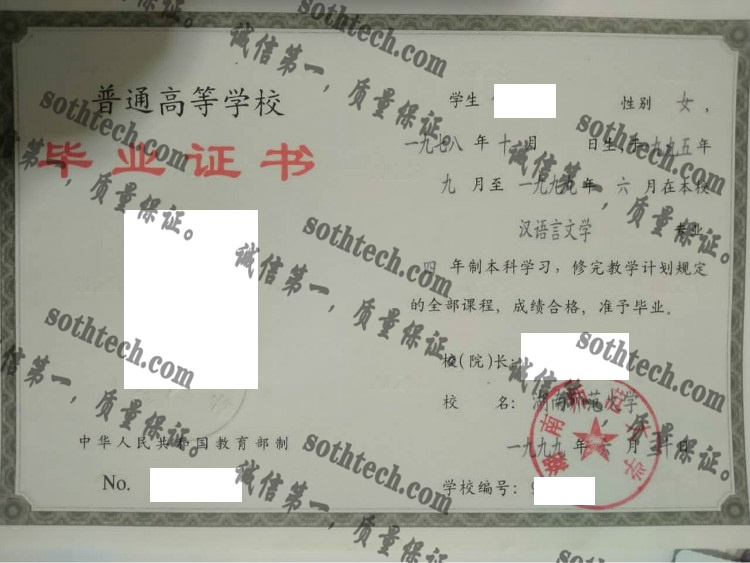 普通高等学校
毕业证书
中华人民共和国教育部制
No.
学生 性别 女，
一九七八年十月 日生，于一九九五年
九月至一九九九年六月在本校
汉语言文学 专业
四年制本科学习，修完教学计划规定
的全部课程，成绩合格，准予毕业。
校(院)长：
校 名：湖南师范大学
一九九九年 月 日
学校编号：9
sothtech.com
诚信第一，质量保证。
sothtech.com
诚信第一，质量保证。
sothtech.com
诚信第一，质量保证。
sothtech.com
诚信第一，质量保证。
sothtech.com
诚信第一，质量保证。
sothtech.com
诚信第一，质量保证。
sothtech.com
sothtech.com